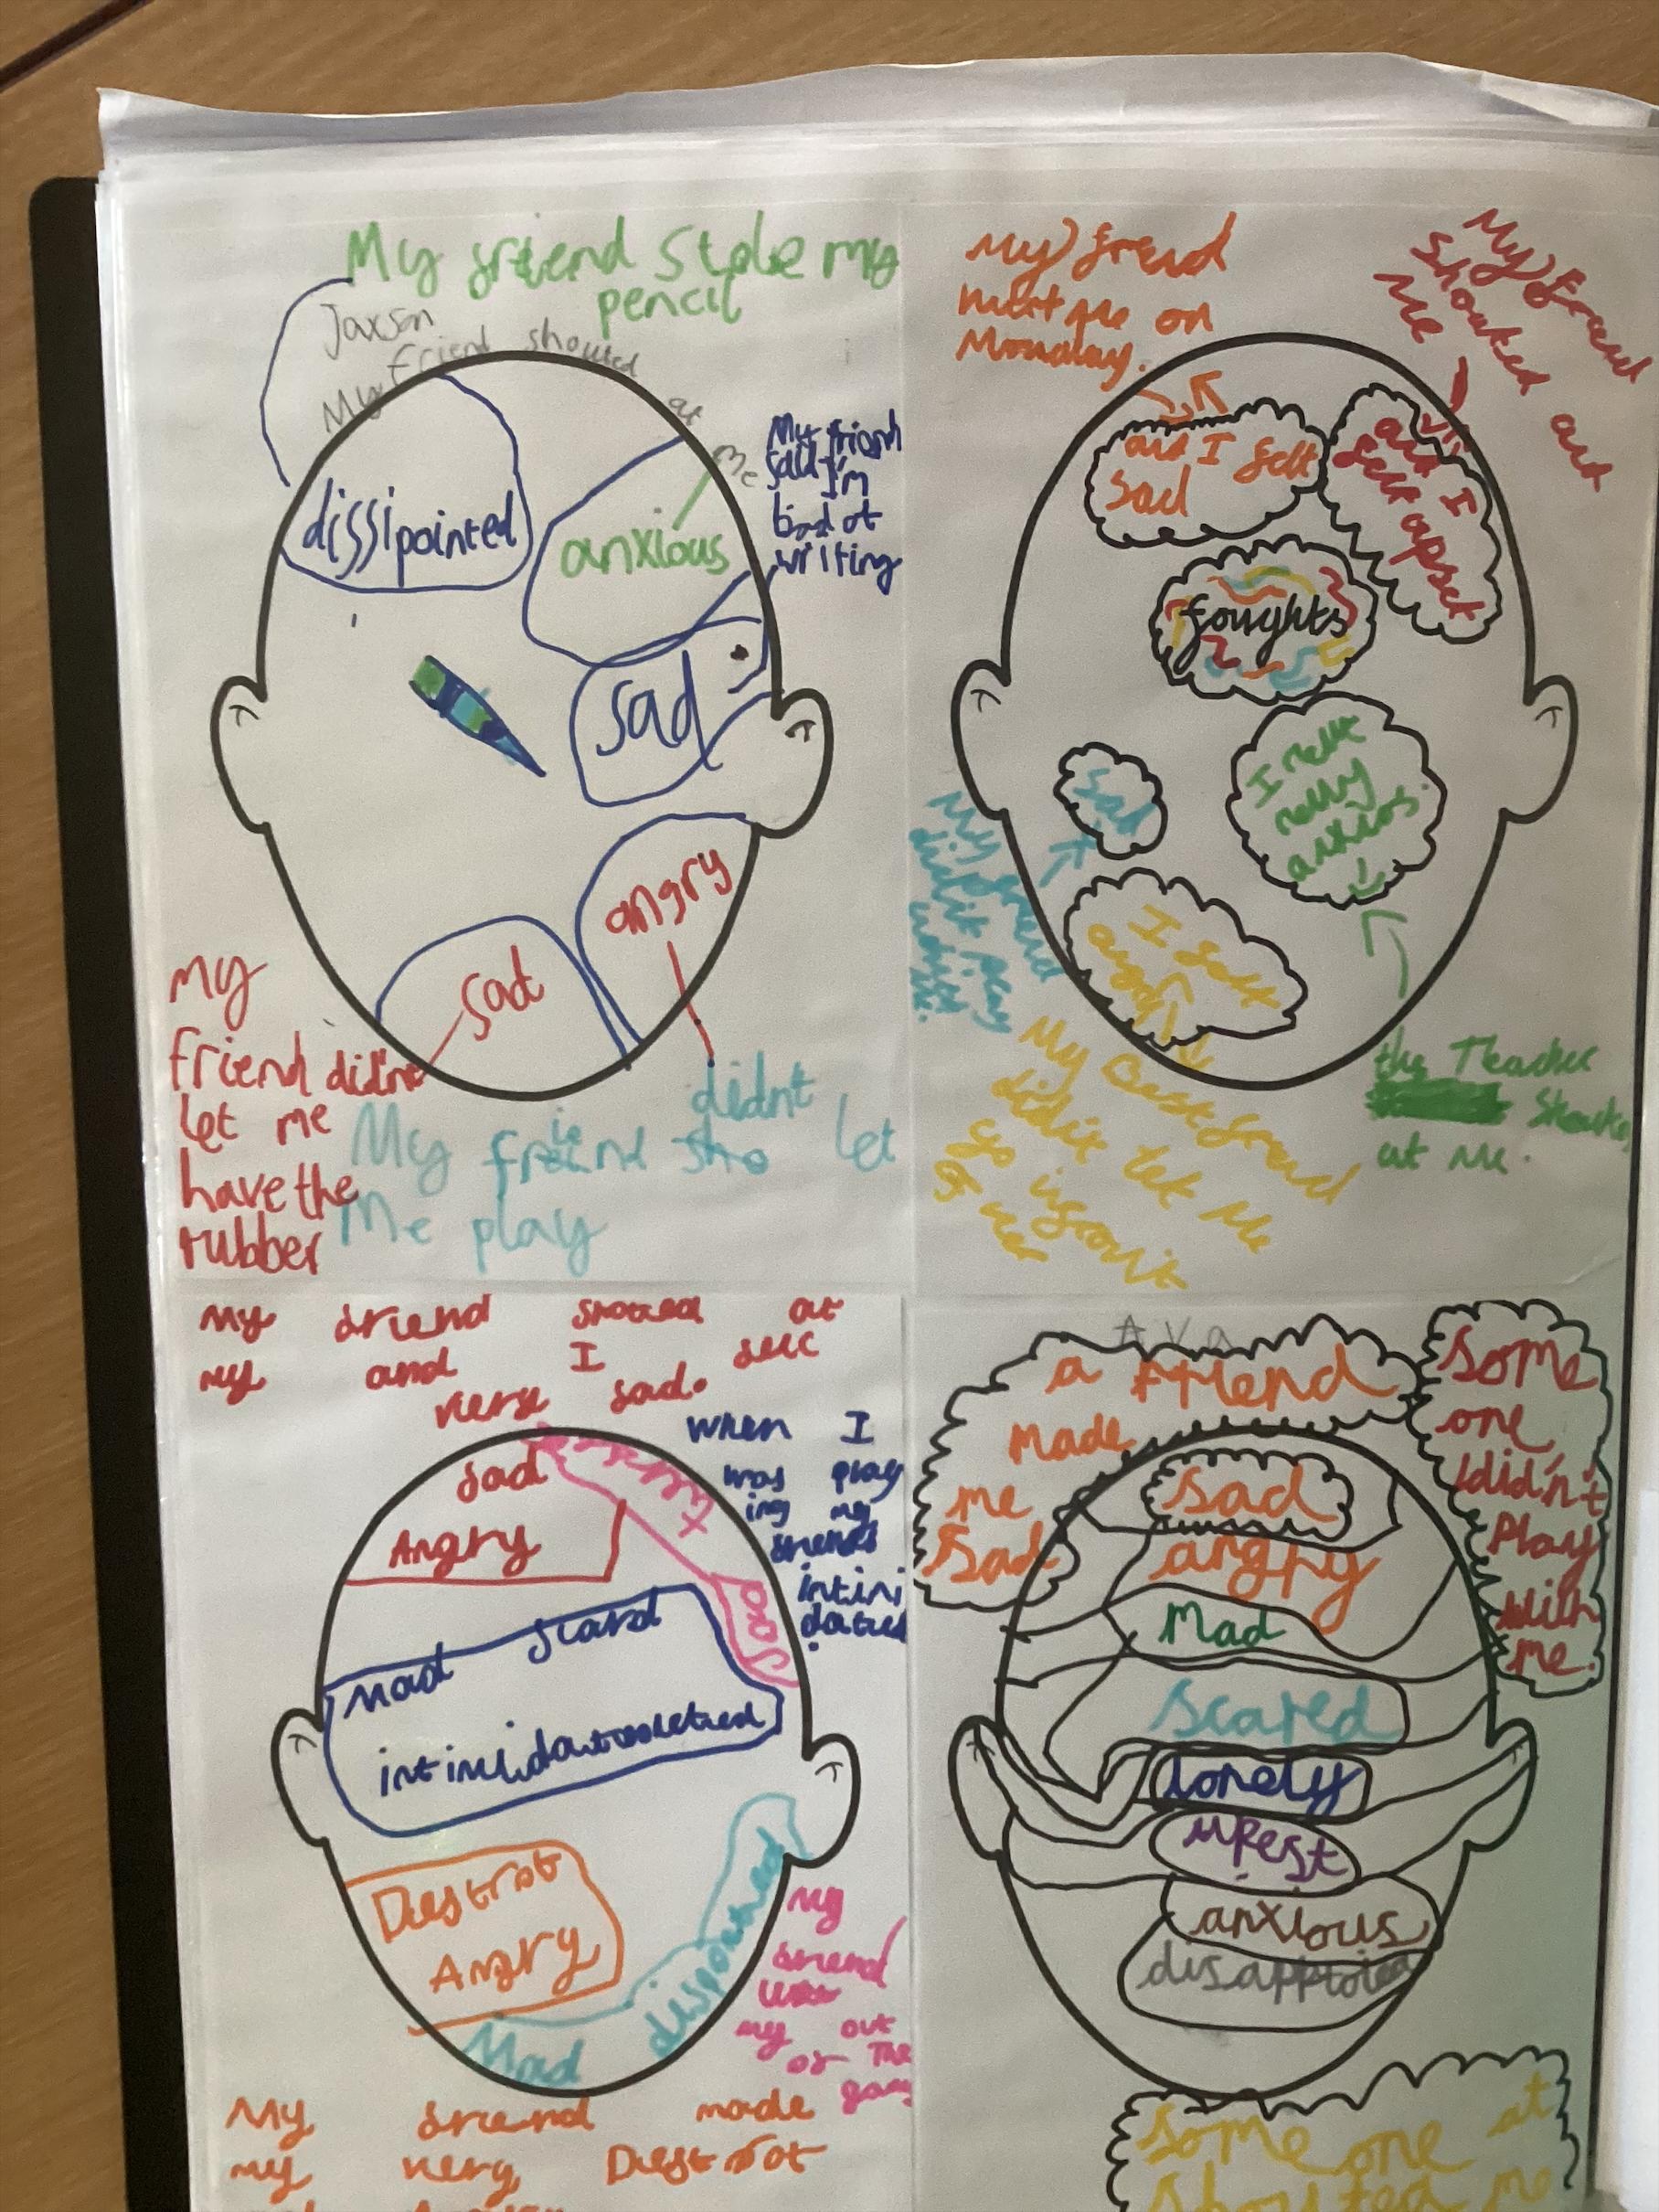 My friend Stole my
pencil
Jaxson
My friend shouted at me
dissipointed
anxious
My friend
said I'm
bad at
writing
sad
angry
sad
My
friend didnt
let me
have the
rubber
didnt
My friend sho let
Me play
My freud
hurt me on
Monday.
My freud
Shouted at
Me
and I felt
sad
and I
felt upset
foughts
I felt
relly
anxios.
sad
My freud
didn't play
with
I felt
angry
My Best freud
didn't let me
go in front
of her
the Teacher
Shouted
at me.
My friend shoted at
my and I feel
very sad.
when I
was play
ing my
friends
intimi
dated
.
sad
Angry
sad
Mad scard
Destrot
Angry
Mad
dispointed
My
friend
my out
of The
gang
My friend made
my very Destrot
Ava
a friend
Made
me
Sad
Some
one
didn't
Play
with
me.
Sad
angry
Mad
Scared
Lonely
upest
anxious
Some one at